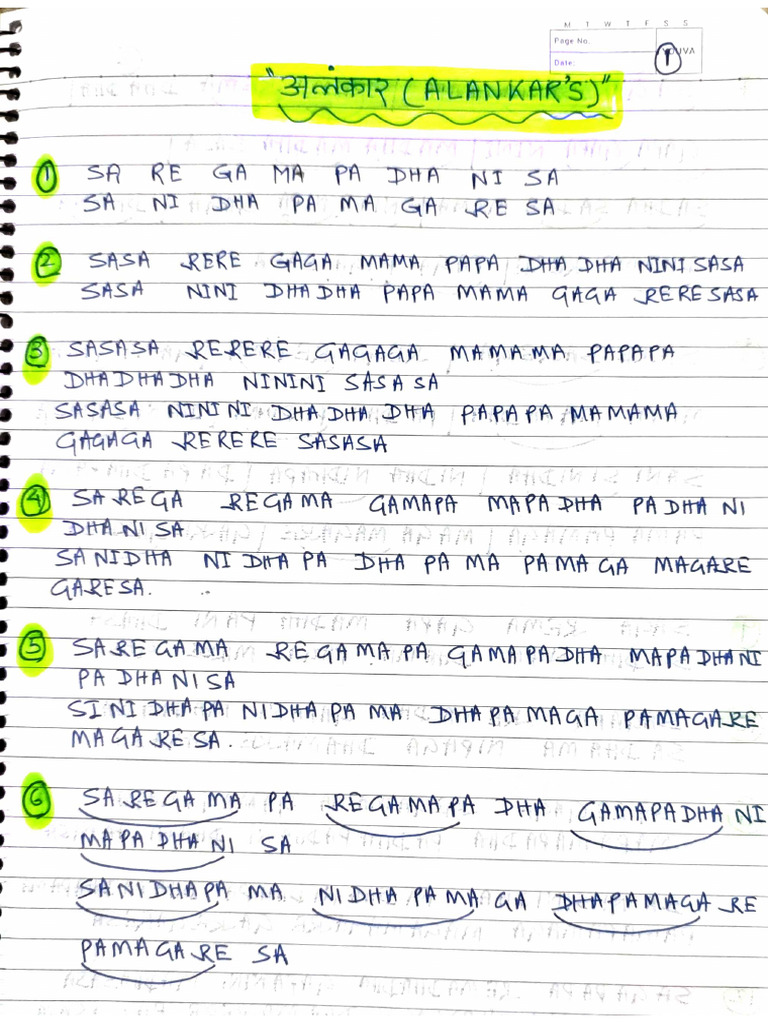 M T W T F S S
Page No.
Date:
YOUVA
1
"अलंकार (ALANKAR'S)"
1 SA RE GA MA PA DHA NI SA
SA NI DHA PA MA GA RE SA
2 SASA RERE GAGA MAMA PAPA DHADHA NINI SASA
SASA NINI DHADHA PAPA MAMA GAGA RERE SASA
3 SASASA RERERE GAGAGA MAMAMA PAPAPA
DHADHADHA NININI SASASA
SASASA NININI DHADHADHA PAPAPA MAMAMA
GAGAGA RERERE SASASA
4 SAREGA REGAMA GAMAPA MAPADHA PADHANI
DHANISA
SANIDHA NIDHAPA DHAPAMA PAMAGA MAGARE
GARESA.
5 SAREGAMA REGAMAPA GAMAPADHA MAPADHANI
PADHANISA
SINIDHAPA NIDHAPAMA DHAPAMAGA PAMAGARE
MAGARESA.
6 SAREGAMA PA REGAMAPA DHA GAMAPADHA NI
MAPADHANI SA
SANIDHAPA MA NIDHAPAMA GA DHAPAMAGA RE
PAMAGARE SA